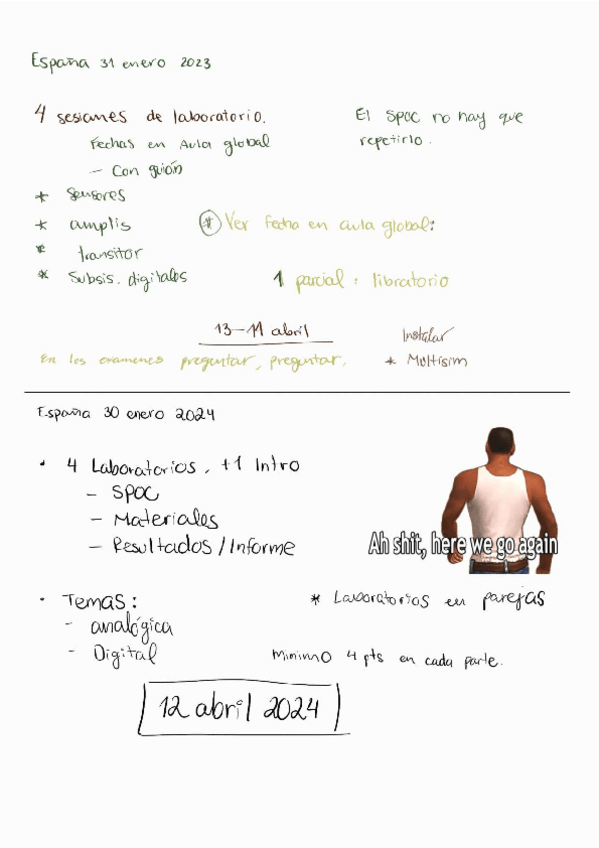 España 31 enero 2023
4 sesiones de laboratorio.
El SPOC no hay que
repetirlo.
Fechas en Aula global
- Con guión
* Sensores
* amplis
* transitor
* Subsis. digitales
* Ver fecha en aula global:
1 parcial: libratorio
13-14 abril
Instalar
* Multisim
En los examenes preguntar, preguntar.
España 30 enero 2024
• 4 Laboratorios, +1 Intro
- SPOC
- Materiales
- Resultados/Informe
Ah shit, here we go again
• Temas:
- analógica
- Digital
* Laboratorios en parejas
Minimo 4 pts en cada parte.
12 abril 2024